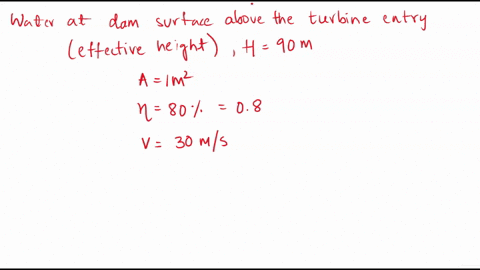 Water at dam surface above the turbine entry
(effective height), H = 90 m
A = 1 m²
η = 80% = 0.8
V = 30 m/s